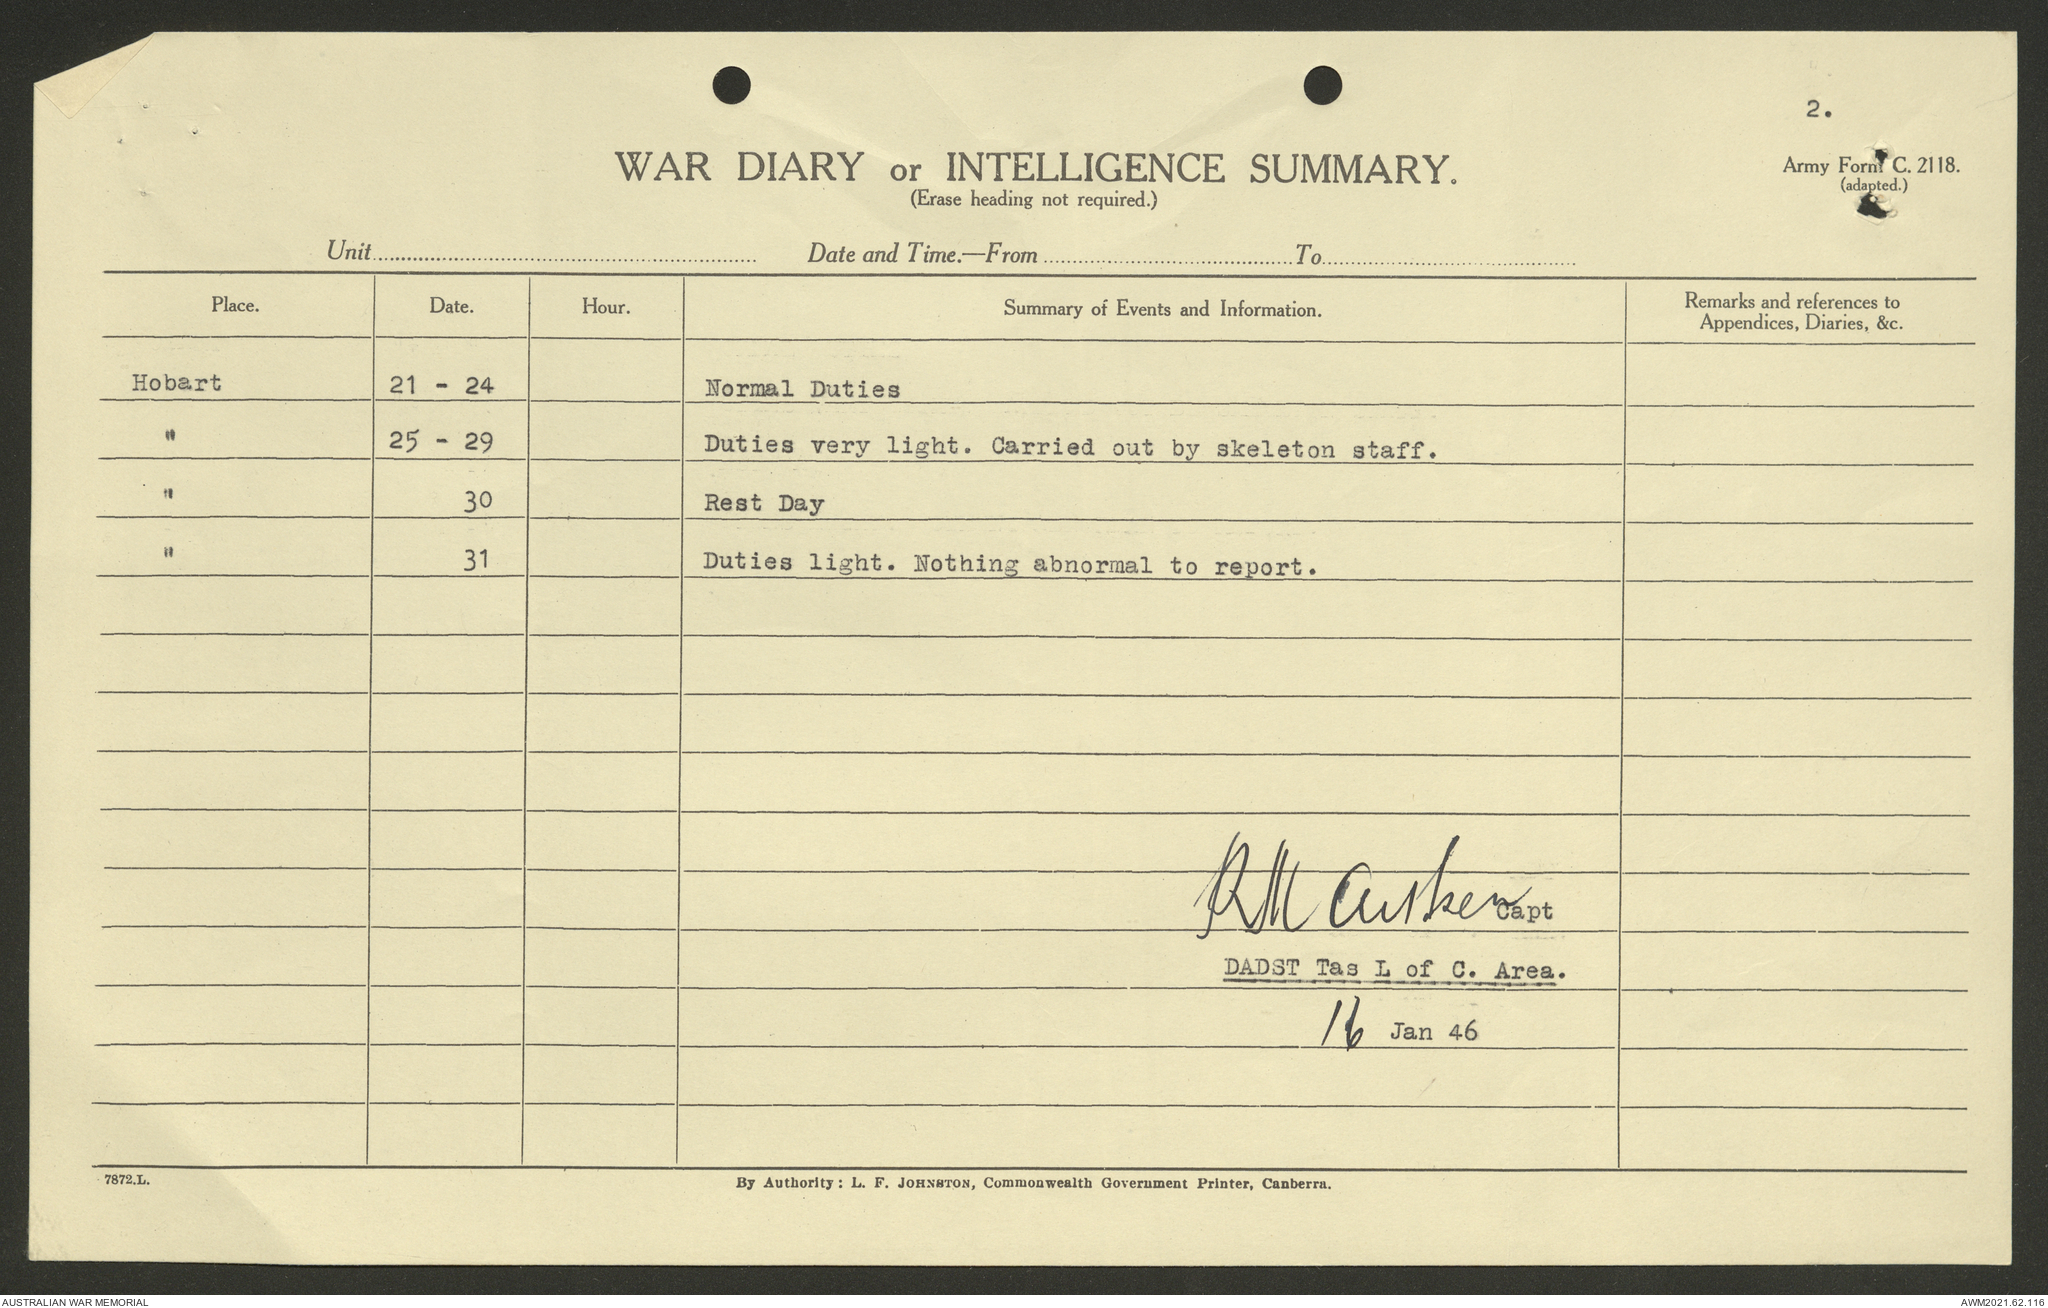 2.
WAR DIARY or INTELLIGENCE SUMMARY.
(Erase heading not required.)
Army Form C. 2118.
(adapted.)
Unit.......... Date and Time.—From .......... To..........
Place. Date. Hour. Summary of Events and Information. Remarks and references to
Appendices, Diaries, &c.
Hobart 21 - 24 Normal Duties
" 25 - 29 Duties very light. Carried out by skeleton staff.
" 30 Rest Day
" 31 Duties light. Nothing abnormal to report.
RM Aitken Capt
DADST Tas L of C. Area.
16 Jan 46
7872.L.
By Authority: L. F. JOHNSTON, Commonwealth Government Printer, Canberra.
AUSTRALIAN WAR MEMORIAL
AWM2021.62.116